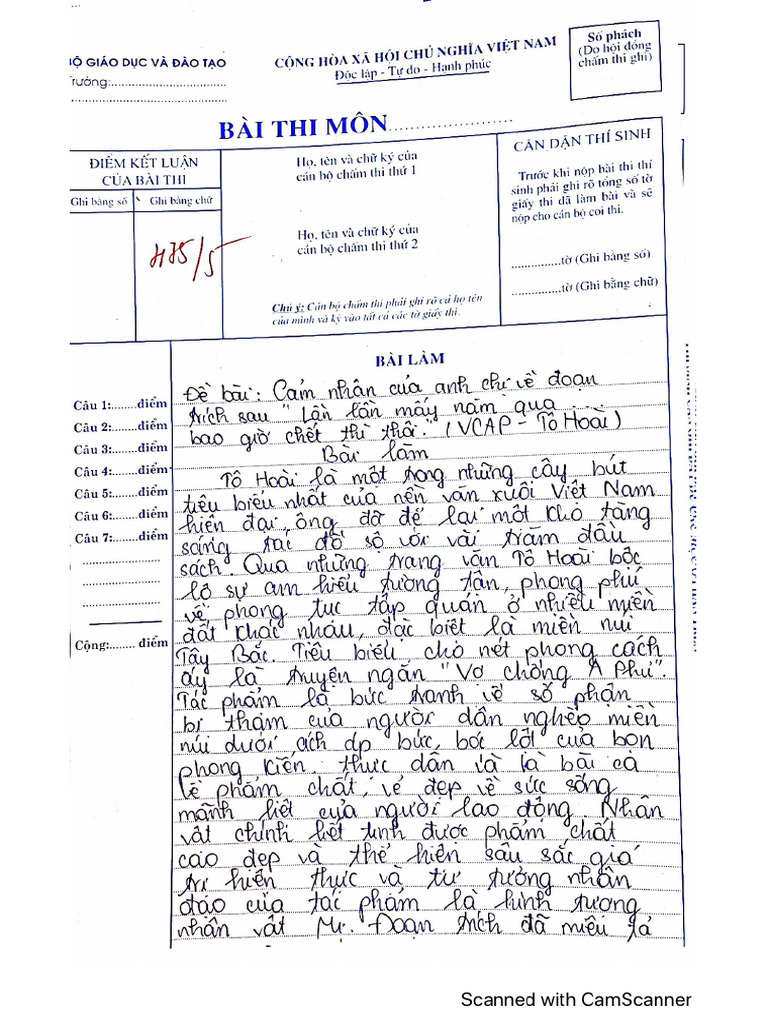 BỘ GIÁO DỤC VÀ ĐÀO TẠO
Trường:
CỘNG HÒA XÃ HỘI CHỦ NGHĨA VIỆT NAM
Độc lập - Tự do - Hạnh phúc
Số phách
(Do hội đồng
chấm thi ghi)
BÀI THI MÔN
ĐIỂM KẾT LUẬN
CỦA BÀI THI
Ghi bằng số
Ghi bằng chữ
Họ, tên và chữ ký của
cán bộ chấm thi thứ 1
Họ, tên và chữ ký của
cán bộ chấm thi thứ 2
Chú ý: Cán bộ chấm thi phải ghi rõ cả họ tên
của mình và ký vào tất cả các tờ giấy thi.
CĂN DẶN THÍ SINH
Trước khi nộp bài thi thí
sinh phải ghi rõ tổng số tờ
giấy thi đã làm bài và sẽ
nộp cho cán bộ coi thi.
tờ (Ghi bằng số)
tờ (Ghi bằng chữ)
BÀI LÀM
Câu 1:.......điểm
Câu 2:.......điểm
Câu 3:.......điểm
Câu 4:.......điểm
Câu 5:.......điểm
Câu 6:.......điểm
Câu 7:.......điểm
Cộng:....... điểm
Đề bài: Cảm nhận của anh chị về đoạn
trích sau "Lần lần mấy năm qua
bao giờ chết thì thôi." (VCAP - Tô Hoài)
Bài làm
Tô Hoài là một trong những cây bút
tiêu biểu nhất của nền văn xuôi Việt Nam
hiện đại, ông đã để lại một kho tàng
sáng tác đồ sộ với vài trăm đầu
sách. Qua những trang văn Tô Hoài bộc
lộ sự am hiểu tường tận, phong phú
về phong tục tập quán ở nhiều miền
đất khác nhau, đặc biệt là miền núi
Tây Bắc. Tiêu biểu cho nét phong cách
ấy là truyện ngắn "Vợ chồng A Phủ".
Tác phẩm là bức tranh về số phận
bi thảm của người dân nghèo miền
núi dưới ách áp bức, bóc lột của bọn
phong kiến, thực dân và là bài ca
về phẩm chất, vẻ đẹp về sức sống
mãnh liệt của người lao động. Nhân
vật chính kết tinh được phẩm chất
cao đẹp và thể hiện sâu sắc giá
trị hiện thực và tư tưởng nhân
đạo của tác phẩm là hình tượng
nhân vật Mị. Đoạn trích đã miêu tả
Scanned with CamScanner